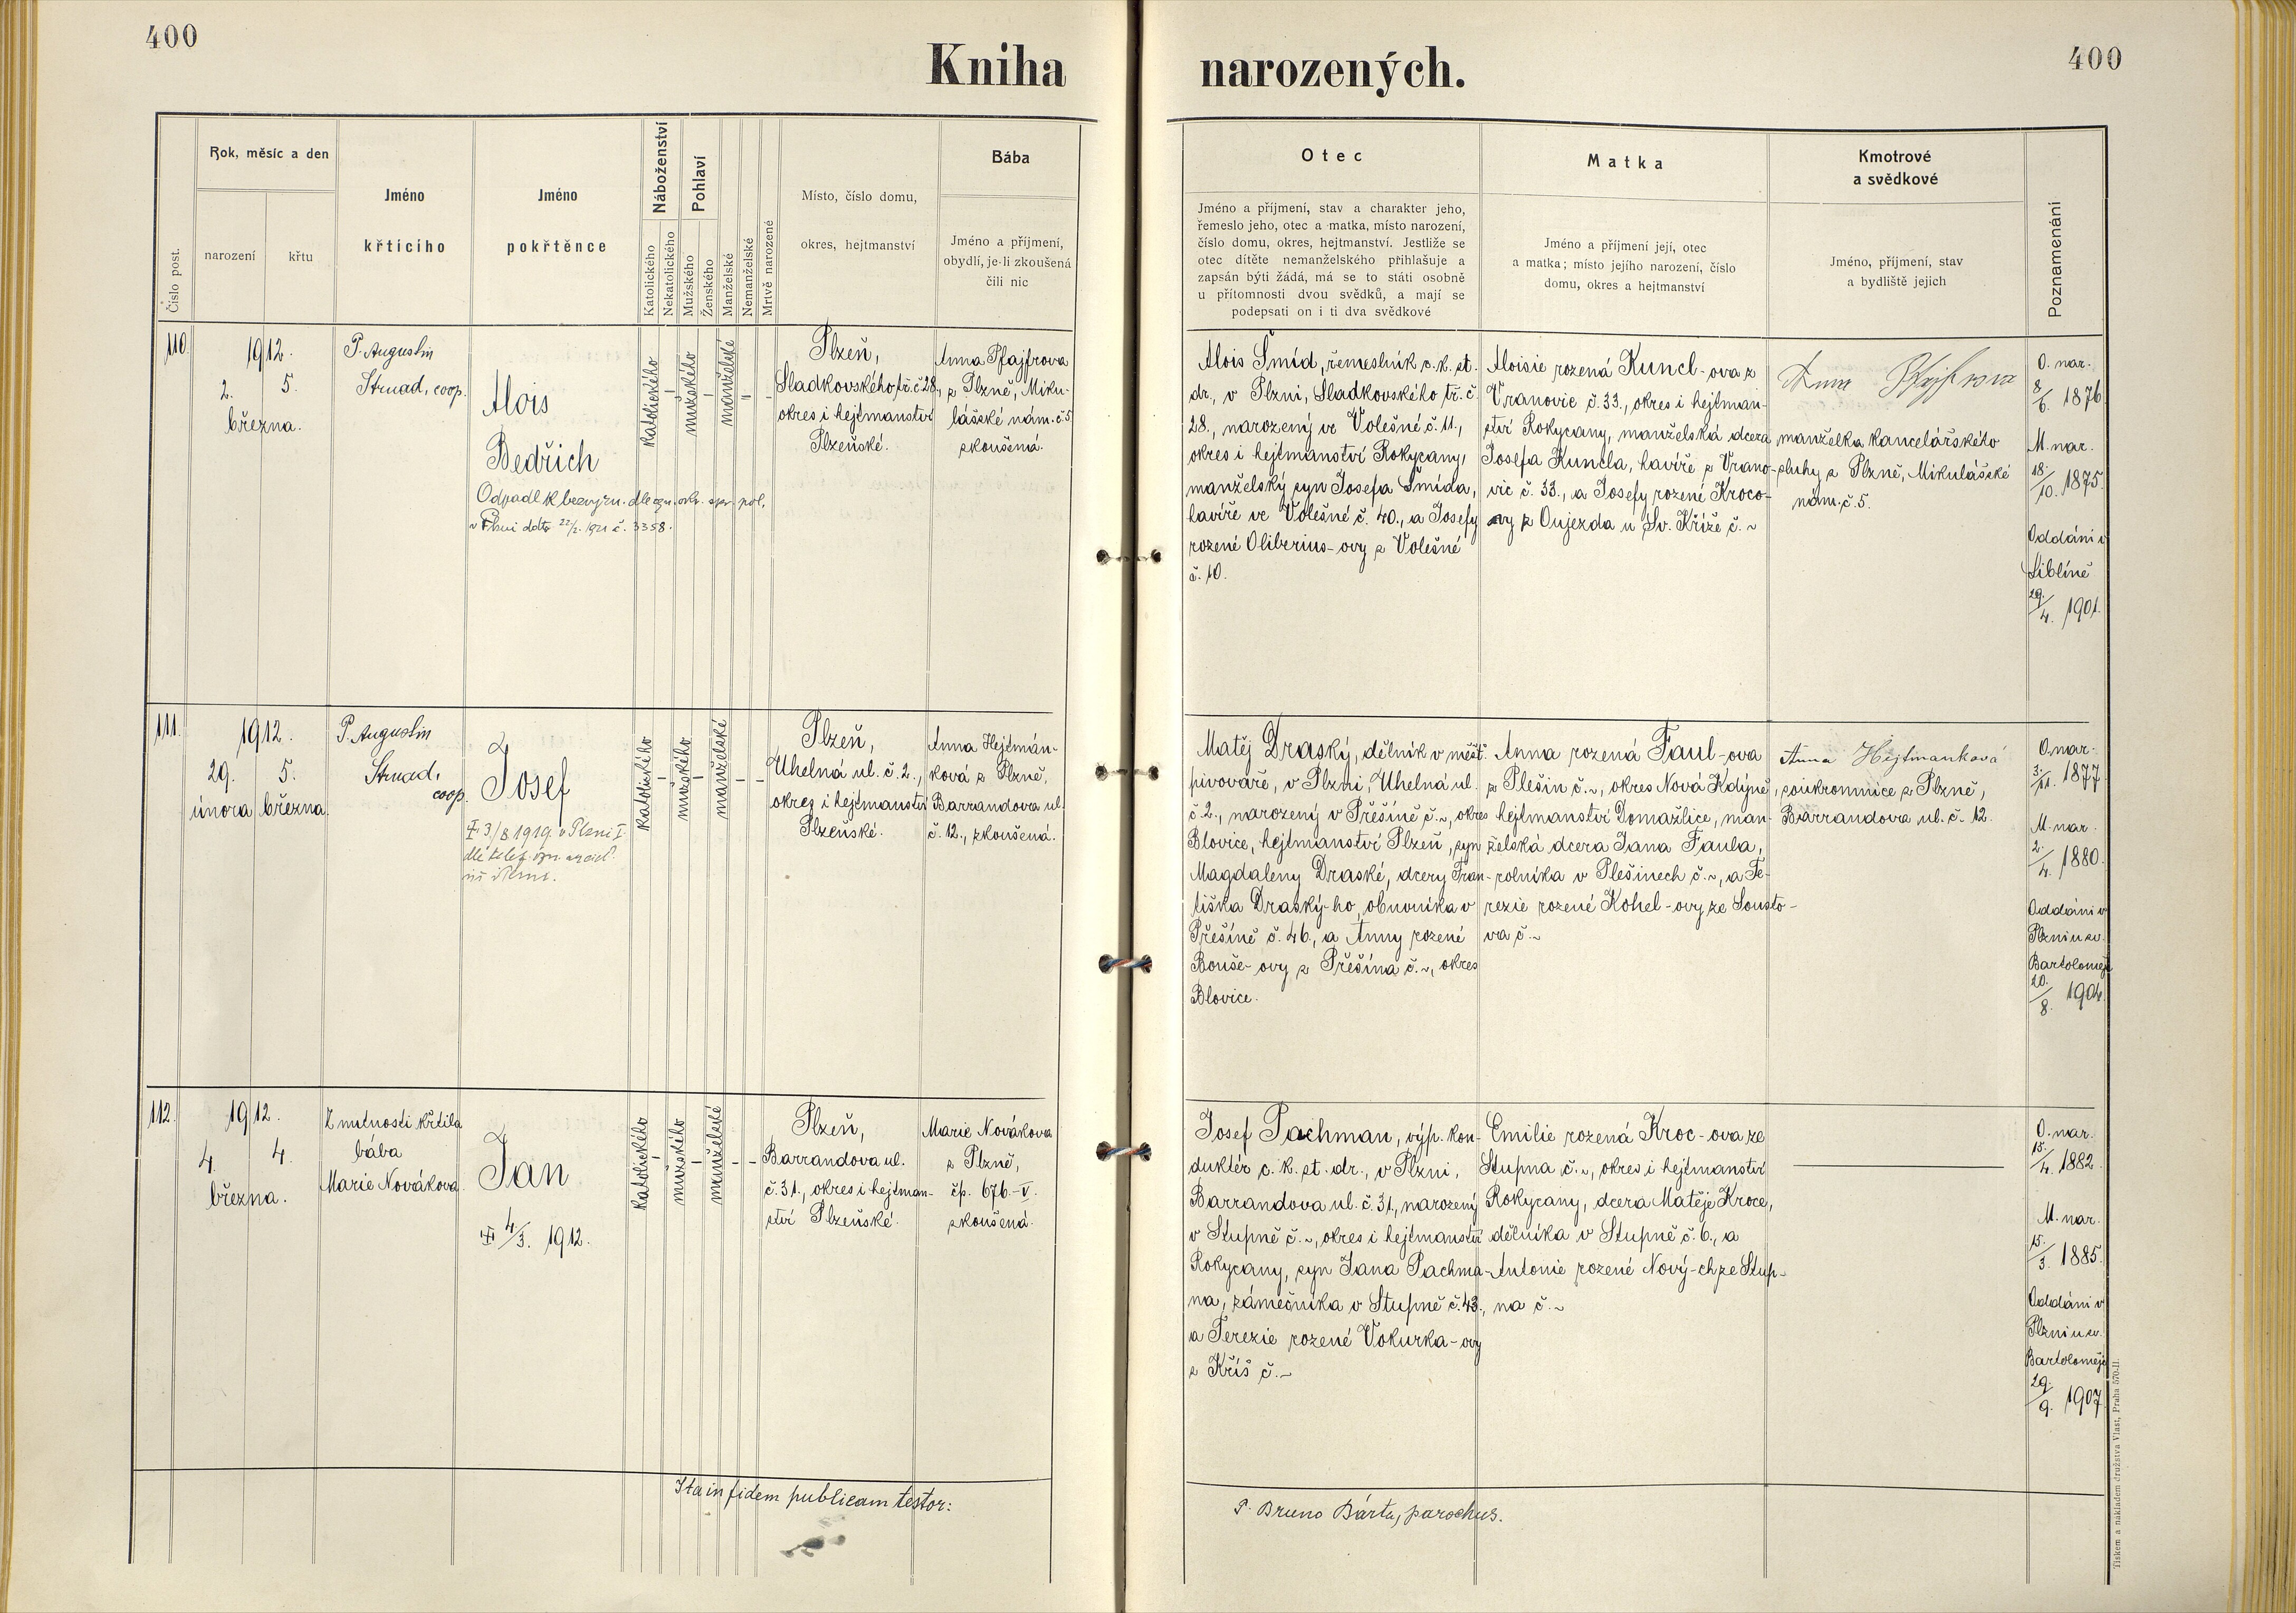 400
Kniha narozených.
400
Číslo post.
Rok, měsíc a den
narození
křtu
Jméno
křtícího
Jméno
pokřtěnce
Náboženství
Katolického
Nekatolického
Pohlaví
Mužského
Ženského
Manželské
Nemanželské
Mrtvě narozené
Místo, číslo domu,
okres, hejtmanství
Bába
Jméno a příjmení,
obydlí, je-li zkoušená
čili nic
Otec
Jméno a příjmení, stav a charakter jeho,
řemeslo jeho, otec a matka, místo narození,
číslo domu, okres, hejtmanství. Jestliže se
otec dítěte nemanželského přihlašuje a
zapsán býti žádá, má se to státi osobně
u přítomnosti dvou svědků, a mají se
podepsati on i ti dva svědkové
Matka
Jméno a příjmení její, otec
a matka; místo jejího narození, číslo
domu, okres a hejtmanství
Kmotrové
a svědkové
Jméno, příjmení, stav
a bydliště jejich
Poznamenání
110.
1912.
2. 5.
března.
P. Augustin
Strnad, coop.
Alois
Bedřich
Odpadl k bezvyzn. dle ozn. okr. spr. pol.
v Plzni ddto 22/2. 1921 č. 3358.
katolického
mužského
manželské
Plzeň,
Sladkovského tř. č 28,
okres i hejtmanství
Plzeňské.
Anna Pfajfrova
z Plzně, Miku-
lášské nám. č. 5
zkoušená.
Alois Šmíd, řemeslník c. k. st.
dr., v Plzni, Sladkovského tř. č.
28., narozený ve Volešné č. 11.,
okres i hejtmanství Rokycany,
manželský syn Josefa Šmída,
havíře ve Volešné č. 40., a Josefy
rozené Oliberius-ovy z Volešné
č. 10.
Aloisie rozená Kuncl-ova z
Vranovic č. 33., okres i hejtman-
ství Rokycany, manželská dcera
Josefa Kuncla, havíře z Vrano-
vic č. 33., a Josefy rozené Kroco-
vy z Oujezda u Sv. Kříže č. ~
Anna Pfajfrova
manželka kancelářského
sluhy z Plzně, Mikulášské
nám. č. 5.
O. nar.
8/6. 1876
M. nar.
18./10. 1875.
Oddáni v
Liblíně
29./4. 1901.
111.
1912.
29. 5.
února března
P. Augustin
Strnad,
coop.
Josef
3/8 1919 v Plzni I.
katolického
mužského
manželské
Plzeň,
Uhelná ul. č. 2.,
okres i hejtmanství
Plzeňské.
Anna Hejtmán-
ková z Plzně,
Barrandova ul.
č. 12., zkoušená.
Matěj Draský, dělník v měšť.
pivováře, v Plzni, Uhelná ul.
č. 2., narozený v Přešíně č. ~, okres
Blovice, hejtmanství Plzeň, syn
Magdaleny Draské, dcery Fran-
tiška Draský-ho, obuvníka v
Přešíně č. 46., a Anny rozené
Bouše-ovy z Přešína č. ~, okres
Blovice.
Anna rozená Faul-ova
z Plešin č. ~, okres Nová Kdýně,
hejtmanství Domažlice, man-
želská dcera Jana Faula,
rolníka v Plešinech č. ~, a Te-
rezie rozené Kohel-ovy ze Lousto-
va č. ~
Anna Hejtmanková
soukromnice z Plzně,
Barrandova ul. č. 12.
O. nar.
3./11. 1877
M. nar.
2./4. 1880.
Oddáni v
Plzni u sv.
Bartoloměje
20./8. 1904.
112.
1912.
4. 4.
března.
Z nutnosti křtila
bába
Marie Novákova
Jan
4/3. 1912.
katolického
mužského
manželské
Plzeň,
Barrandova ul.
č. 31., okres i hejtman-
ství Plzeňské.
Marie Novákova
z Plzně,
čp. 676.-V.
zkoušená.
Josef Pachman, výp. kon-
duktér c. k. st. dr., v Plzni,
Barrandova ul. č. 31., narozený
v Stupně č. ~, okres i hejtmanství
Rokycany, syn Jana Pachma-
na, zámečníka v Stupně č. 43.,
a Terezie rozené Vokurka-ovy
z Kříš č. ~
Emilie rozená Kroc-ova ze
Stupna č. ~, okres i hejtmanství
Rokycany, dcera Matěje Kroce,
dělníka v Stupně č. 6., a
Antonie rozené Nový-ch ze Stup-
na č. ~
O. nar.
15./4. 1882.
M. nar.
15./3. 1885.
Oddáni v
Plzni u sv.
Bartoloměje
29./9. 1907.
Ita in fidem publicam testor:
P. Bruno Bárta, parochus.
Tiskem a nákladem družstva Vlast, Praha 570-II.